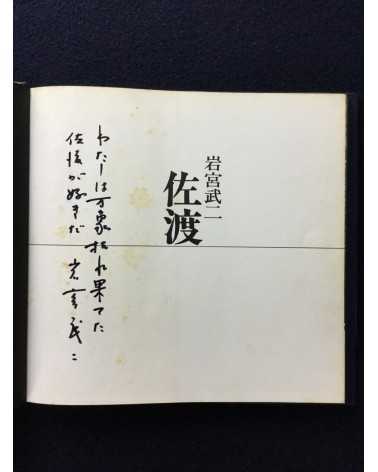 岩宮武二
佐渡
わたしは万象枯れ果てた
佐渡が好きだ 岩宮武二